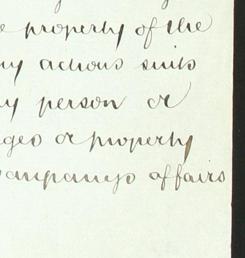 property of the
ny actions suits
ny person or
ges or property
ompanys affairs